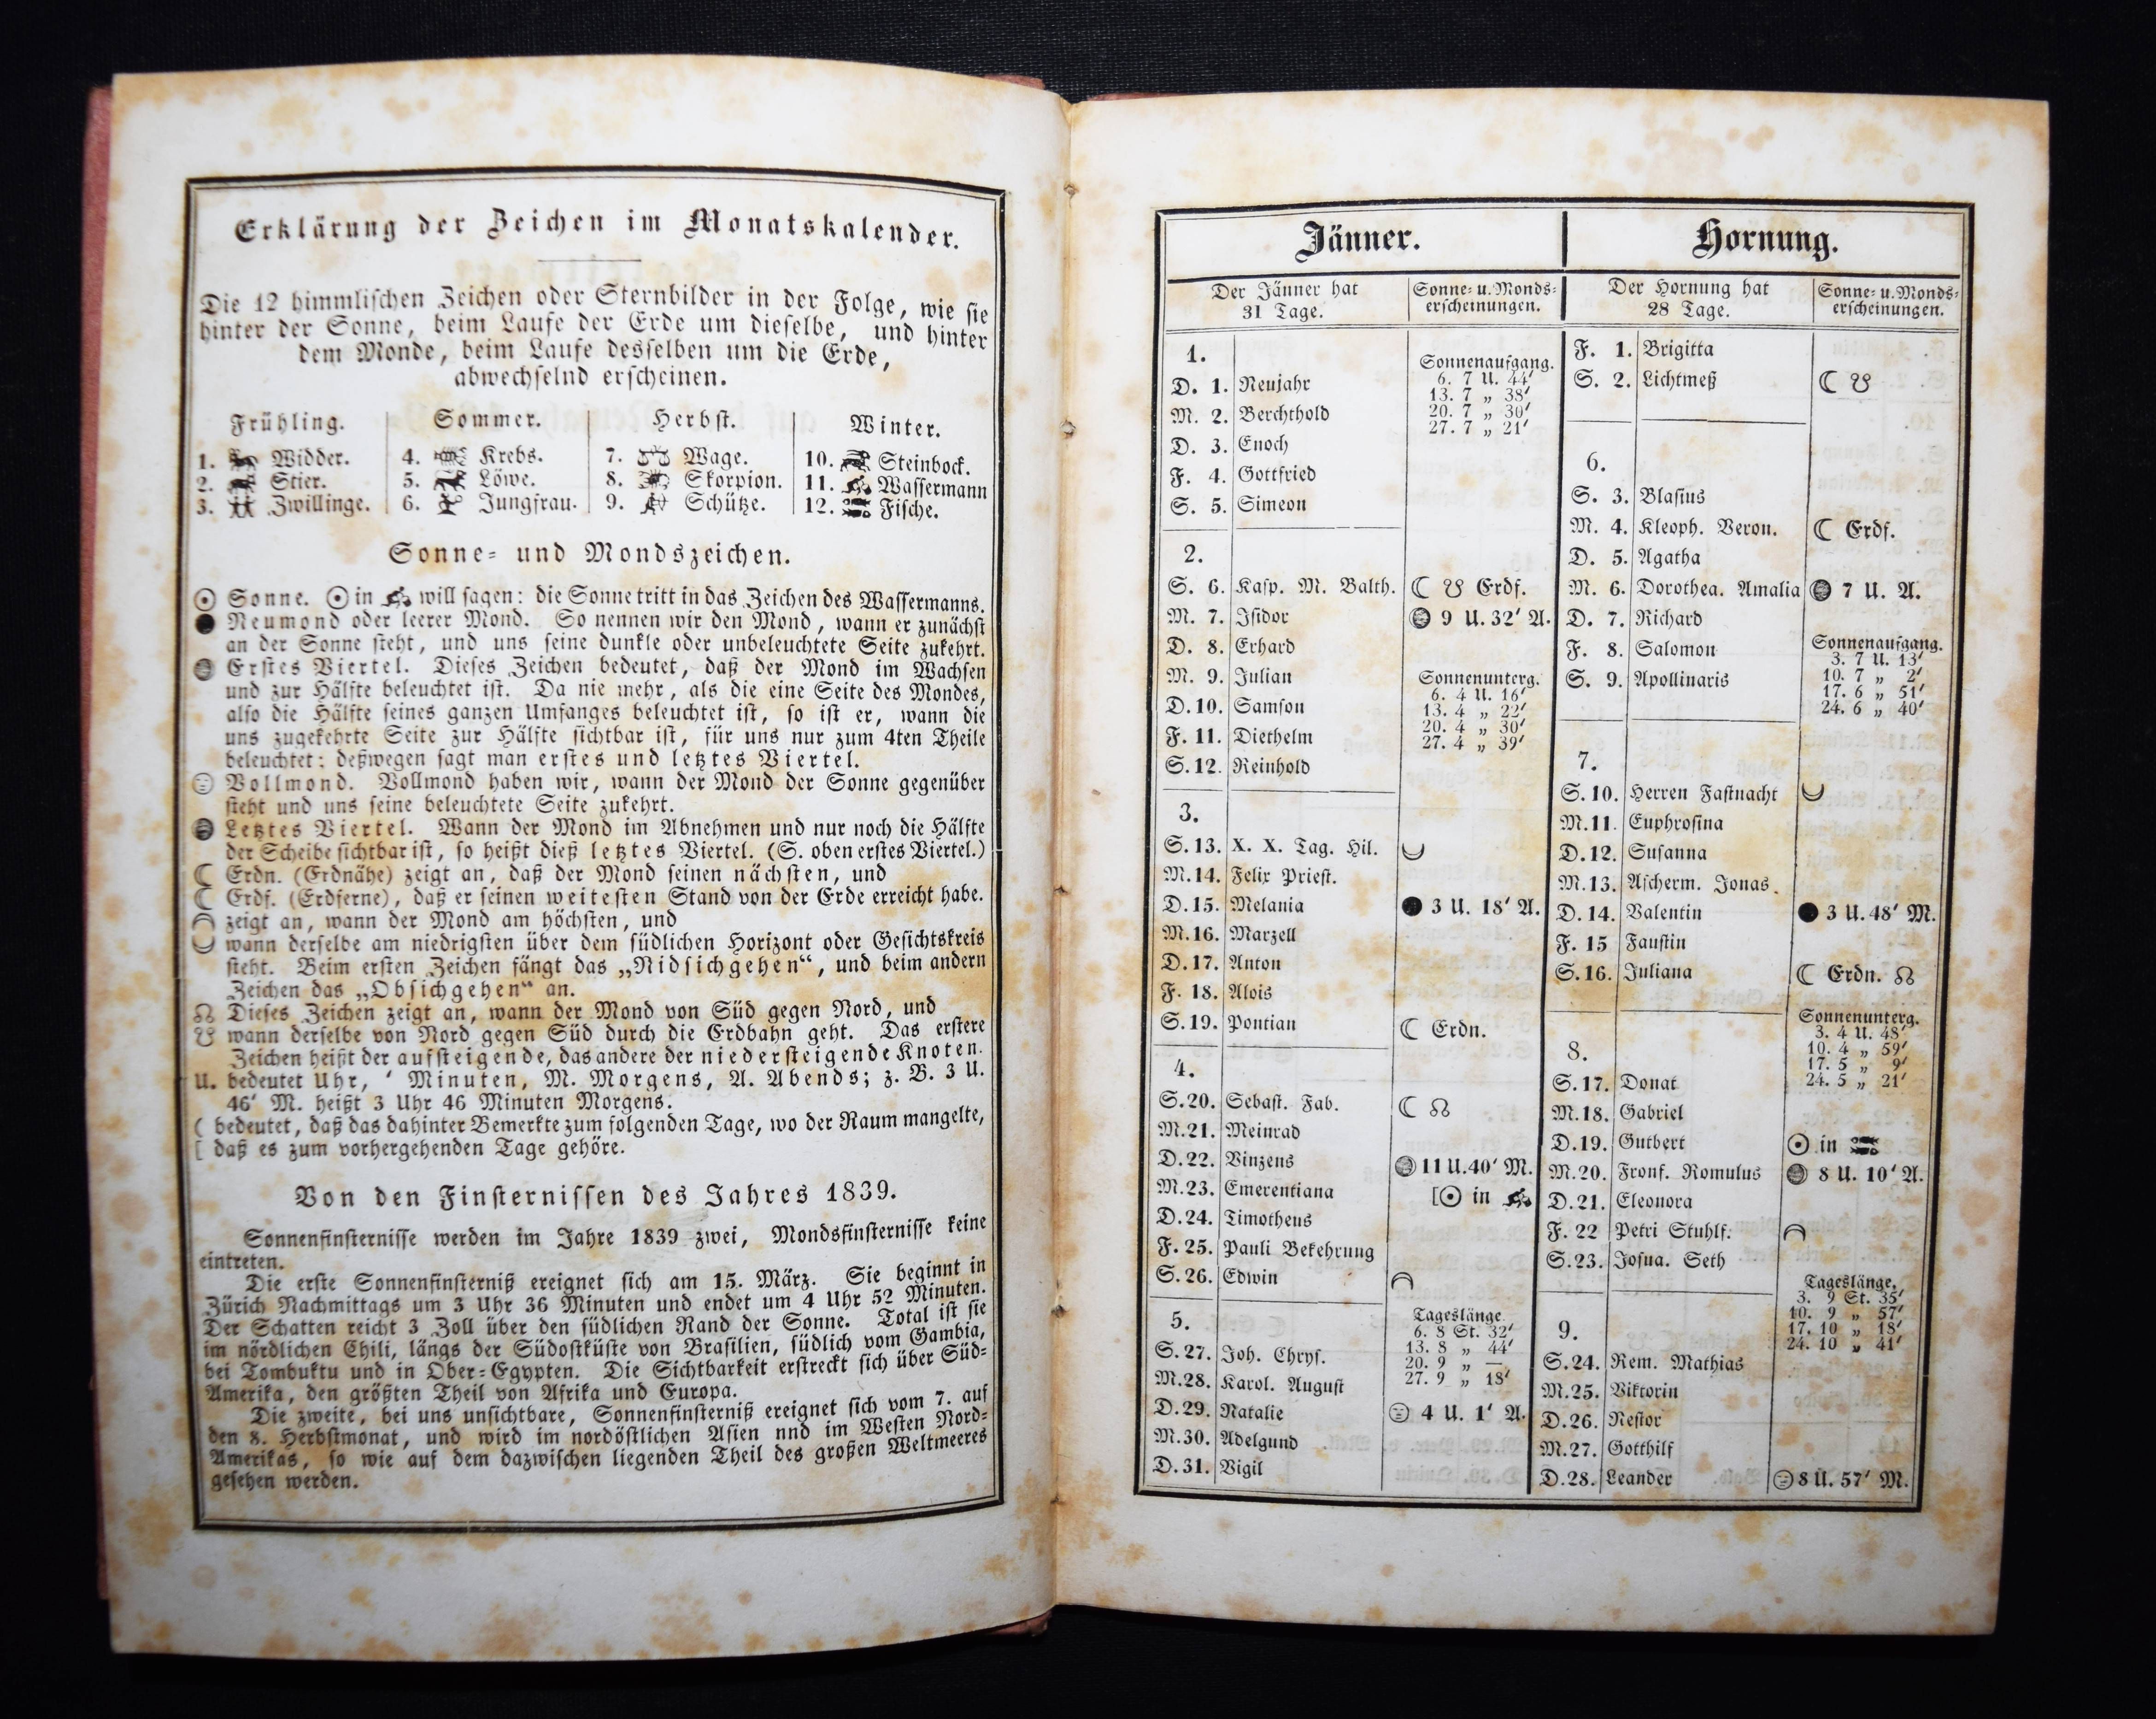 Erklärung der Zeichen im Monatskalender.
Die 12 himmlischen Zeichen oder Sternbilder in der Folge, wie sie
hinter der Sonne, beim Laufe der Erde um dieselbe, und hinter
dem Monde, beim Laufe desselben um die Erde,
abwechselnd erscheinen.
Frühling. Sommer. Herbst. Winter.
1. Widder. 4. Krebs. 7. Wage. 10. Steinbock.
2. Stier. 5. Löwe. 8. Skorpion. 11. Wassermann
3. Zwillinge. 6. Jungfrau. 9. Schütze. 12. Fische.
Sonne- und Mondszeichen.
☉ Sonne. ☉ in will sagen: die Sonne tritt in das Zeichen des Wassermanns.
● Neumond oder leerer Mond. So nennen wir den Mond, wann er zunächst
an der Sonne steht, und uns seine dunkle oder unbeleuchtete Seite zukehrt.
Erstes Viertel. Dieses Zeichen bedeutet, daß der Mond im Wachsen
und zur Hälfte beleuchtet ist. Da nie mehr, als die eine Seite des Mondes,
also die Hälfte seines ganzen Umfanges beleuchtet ist, so ist er, wann die
uns zugekehrte Seite zur Hälfte sichtbar ist, für uns nur zum 4ten Theile
beleuchtet; deßwegen sagt man erstes und letztes Viertel.
Vollmond. Vollmond haben wir, wann der Mond der Sonne gegenüber
steht und uns seine beleuchtete Seite zukehrt.
Letztes Viertel. Wann der Mond im Abnehmen und nur noch die Hälfte
der Scheibe sichtbar ist, so heißt dieß letztes Viertel. (S. oben erstes Viertel.)
☾ Erdn. (Erdnähe) zeigt an, daß der Mond seinen nächsten, und
☾ Erdf. (Erdferne), daß er seinen weitesten Stand von der Erde erreicht habe.
zeigt an, wann der Mond am höchsten, und
wann derselbe am niedrigsten über dem südlichen Horizont oder Gesichtskreis
steht. Beim ersten Zeichen fängt das „Nidsichgehen“, und beim andern
Zeichen das „Obsichgehen“ an.
☊ Dieses Zeichen zeigt an, wann der Mond von Süd gegen Nord, und
☋ wann derselbe von Nord gegen Süd durch die Erdbahn geht. Das erstere
Zeichen heißt der aufsteigende, das andere der niedersteigende Knoten.
U. bedeutet Uhr, ′ Minuten, M. Morgens, A. Abends; z. B. 3 U.
46′ M. heißt 3 Uhr 46 Minuten Morgens.
( bedeutet, daß das dahinter Bemerkte zum folgenden Tage, wo der Raum mangelte,
[ daß es zum vorhergehenden Tage gehöre.
Von den Finsternissen des Jahres 1839.
Sonnenfinsternisse werden im Jahre 1839 zwei, Mondsfinsternisse keine
eintreten.
Die erste Sonnenfinsterniß ereignet sich am 15. März. Sie beginnt in
Zürich Nachmittags um 3 Uhr 36 Minuten und endet um 4 Uhr 52 Minuten.
Der Schatten reicht 3 Zoll über den südlichen Rand der Sonne. Total ist sie
im nördlichen Chili, längs der Südostküste von Brasilien, südlich vom Gambia,
bei Tombuktu und in Ober-Egypten. Die Sichtbarkeit erstreckt sich über Süd-
Amerika, den größten Theil von Afrika und Europa.
Die zweite, bei uns unsichtbare, Sonnenfinsterniß ereignet sich vom 7. auf
den 8. Herbstmonat, und wird im nordöstlichen Asien nnd im Westen Nord-
Amerikas, so wie auf dem dazwischen liegenden Theil des großen Weltmeeres
gesehen werden.
Jänner.
Der Jänner hat
31 Tage.
Sonne- u. Monds-
erscheinungen.
1.
D. 1. Neujahr
M. 2. Berchthold
D. 3. Enoch
F. 4. Gottfried
S. 5. Simeon
Sonnenaufgang.
6. 7 U. 44′
13. 7 „ 38′
20. 7 „ 30′
27. 7 „ 21′
2.
S. 6. Kasp. M. Balth. ☾ ☋ Erdf.
M. 7. Isidor 9 U. 32′ A.
D. 8. Erhard
M. 9. Julian
D. 10. Samson
F. 11. Diethelm
S. 12. Reinhold
Sonnenunterg.
6. 4 U. 16′
13. 4 „ 22′
20. 4 „ 30′
27. 4 „ 39′
3.
S. 13. X. X. Tag. Hil.
M. 14. Felix Priest.
D. 15. Melania ● 3 U. 18′ A.
M. 16. Marzell
D. 17. Anton
F. 18. Alois
S. 19. Pontian ☾ Erdn.
4.
S. 20. Sebast. Fab. ☾ ☊
M. 21. Meinrad
D. 22. Vinzens 11 U. 40′ M.
M. 23. Emerentiana [☉ in
D. 24. Timotheus
F. 25. Pauli Bekehrung
S. 26. Edwin
5.
S. 27. Joh. Chrys.
M. 28. Karol. August
D. 29. Natalie 4 U. 1′ A.
M. 30. Adelgund
D. 31. Vigil
Tageslänge.
6. 8 St. 32′
13. 8 „ 44′
20. 9 „ —
27. 9 „ 18′
Hornung.
Der Hornung hat
28 Tage.
Sonne- u. Monds-
erscheinungen.
F. 1. Brigitta
S. 2. Lichtmeß ☾ ☋
6.
S. 3. Blasius
M. 4. Kleoph. Veron. ☾ Erdf.
D. 5. Agatha
M. 6. Dorothea. Amalia 7 U. A.
D. 7. Richard
F. 8. Salomon
S. 9. Apollinaris
Sonnenaufgang.
3. 7 U. 13′
10. 7 „ 2′
17. 6 „ 51′
24. 6 „ 40′
7.
S. 10. Herren Fastnacht
M. 11. Euphrosina
D. 12. Susanna
M. 13. Ascherm. Jonas.
D. 14. Valentin ● 3 U. 48′ M.
F. 15 Faustin
S. 16. Juliana ☾ Erdn. ☊
Sonnenunterg.
3. 4 U. 48′
10. 4 „ 59′
17. 5 „ 9′
24. 5 „ 21′
8.
S. 17. Donat
M. 18. Gabriel
D. 19. Gutbert ☉ in
M. 20. Fronf. Romulus 8 U. 10′ A.
D. 21. Eleonora
F. 22 Petri Stuhlf.
S. 23. Josua. Seth
Tageslänge.
3. 9 St. 35′
10. 9 „ 57′
17. 10 „ 18′
24. 10 „ 41′
9.
S. 24. Rem. Mathias
M. 25. Viktorin
D. 26. Nestor
M. 27. Gotthilf
D. 28. Leander 8 U. 57′ M.